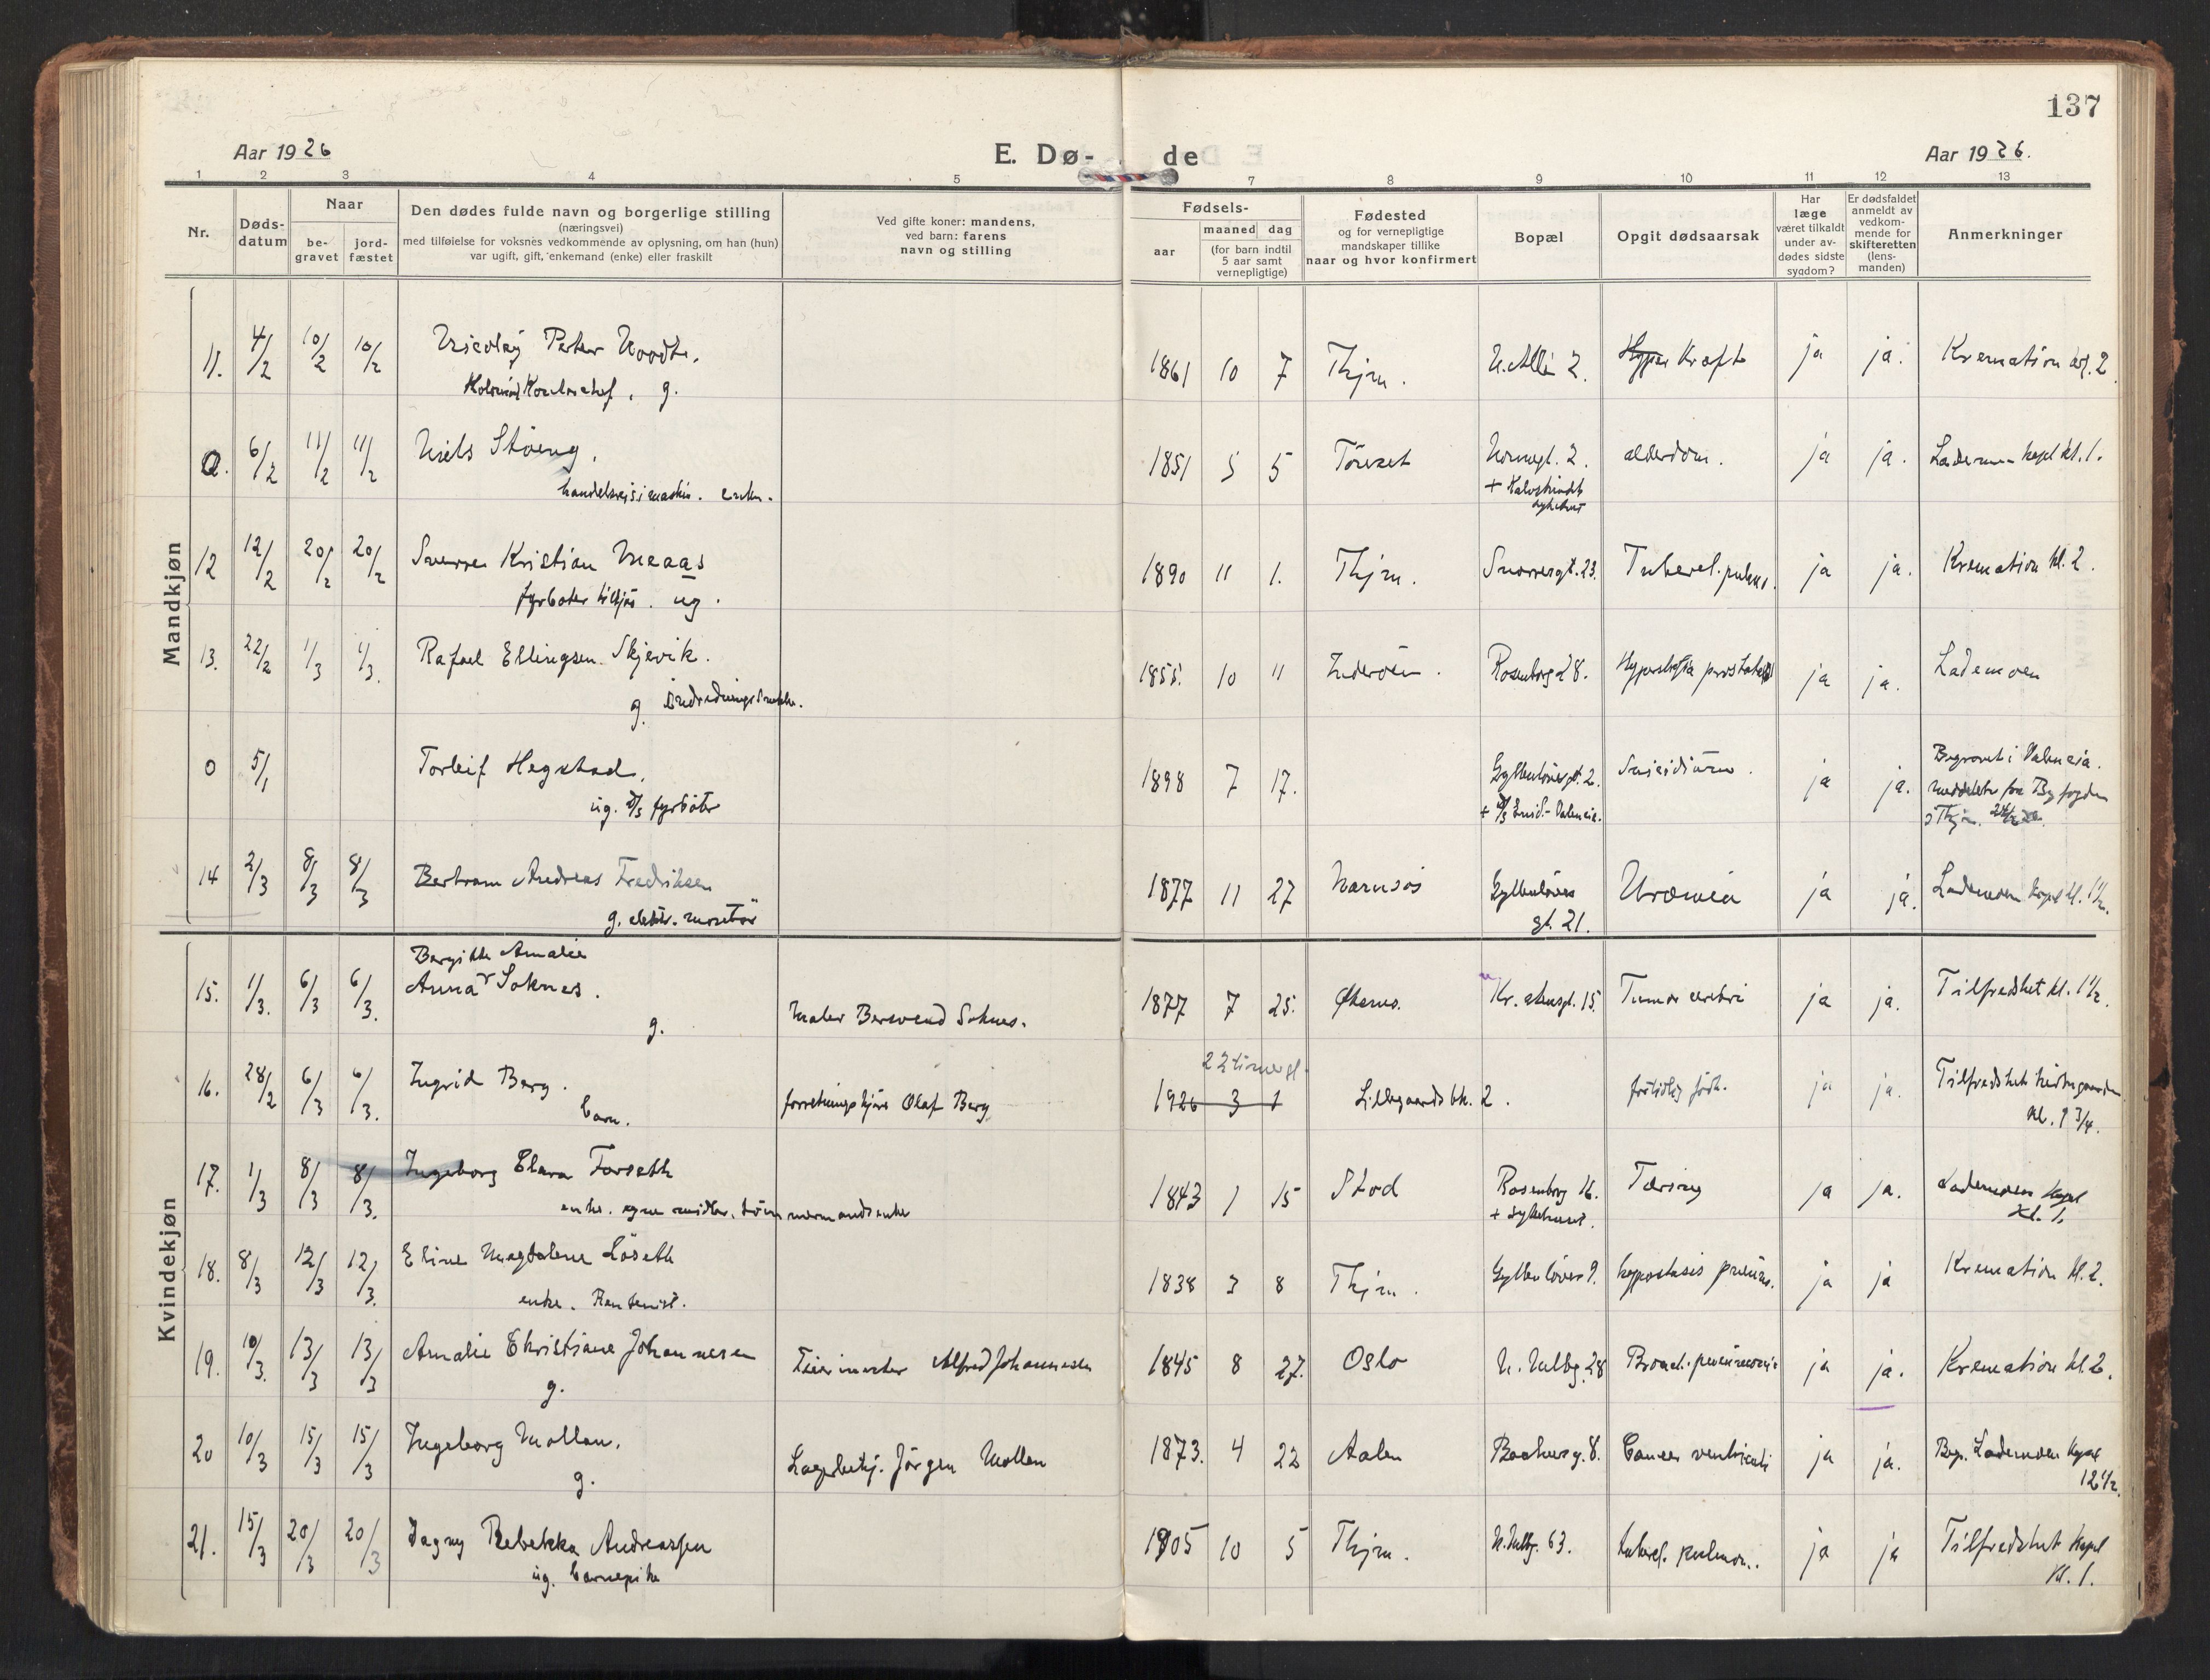 137
Aar 1926
E. Dø- de
Aar 1926.
1 2 3 4 5 7 8 9 10 11 12 13
Nr.
Døds-
datum
Naar
be-
gravet
jord-
fæstet
Den dødes fulde navn og borgerlige stilling
(næringsvei)
med tilføielse for voksnes vedkommende av oplysning, om han (hun)
var ugift, gift, enkemand (enke) eller fraskilt
Ved gifte koner: mandens,
ved barn: farens
navn og stilling
Fødsels-
aar
maaned dag
(for barn indtil
5 aar samt
vernepligtige)
Fødested
og for vernepligtige
mandskaper tillike
naar og hvor konfirmert
Bopæl
Opgit dødsaarsak
Har
læge
været tilkaldt
under av-
dødes sidste
sygdom?
Er dødsfaldet
anmeldt av
vedkom-
mende for
skifteretten
(lens-
manden)
Anmerkninger
Mandkjøn
11. 4/2 10/2 10/2 Nicolay Peter 1861 10 7 Thjm. N. Allé 2. Kræft ja ja. Kremation kl. 2
g.
a. 6/2 11/2 11/2 Niels Støeng. 1851 5 5 Tønset 2. alderdom. ja ja. kapel kl. 1.
enkem.
12 12/2 20/2 20/2 Sverre Kristian Meaas 1890 11 1. Thjm. Snorresgt. 23. Tubercl. pulm. ja ja. Kremation kl. 2.
fyrbøter ug.
13. 22/2 1/3 1/3. Rafael Ellingsen Skjevik. 1855. 10 11 Inderøen. Rosenborg 28. prostatae ja ja. Lademoen
g.
0 5/1 Torleif Hegstad. 1898 7 17. Gyldenløvesgt. 2. Suicidium. ja ja. Begravet i Valencia.
ug. d/s fyrbøter + d/s - Valencia. meddelt fra Byfogden
i Thjm.
14 2/3 8/3 8/3 Bertram Andreas Fredriksen 1877 11 27 Namsos Gyldenløves Uræmia ja ja. Lademoen kapel kl. 1½.
g. elektr. montør gt. 21.
Kvindekjøn
Bergitte Amalie
15. 1/3. 6/3 6/3. Anna Soknes. 1877 7 25. Kr. gt. 15. Tumor cerebri ja ja. Tilfredshet kl. 1½.
g. Maler Soknes.
22 timer gl.
16. 28/2 6/3 6/3. Ingrid Berg. forretningsfører Olaf Berg. 1926 3 1 Lillegaardsbk. 2. født. ja ja. Tilfredshet
barn. kl. 1 3/4.
17. 1/3 8/3 8/3. Ingeborg Clara Forseth 1843 1 15 Stod Rosenborg 16. Tæring ja ja. Lademoen kapel
enke. egne midler. tømmermandsenke + sykehuset. kl. 1.
18. 8/3 12/3 12/3. Eline Magdalene Løseth 1838 3 8 Thjm. Gyldenløves 9. ja ja Kremation kl. 2.
enke. Rentenist.
19. 10/3. 13/3 13/3 Amalie Christiane Johannesen Alfred Johannesen 1845 8 27. Oslo 28 Bronch. pneumonie ja ja. Kremation kl. 2.
g.
20 10/3 15/3 15/3 Ingeborg Mollan. Lagerbetj. Jørgen Mollan 1873. 4 22 Aalen 8. Cancer ventriculi ja ja. Beg. Lademoen kapel
g. 12½.
21. 15/3 20/3 20/3 Dagny Rebekka Andreassen 1905 10 5 Thjm. 63. tubercl. pulmon. ja ja Tilfredshet kapel
ug. barnepike kl. 1.